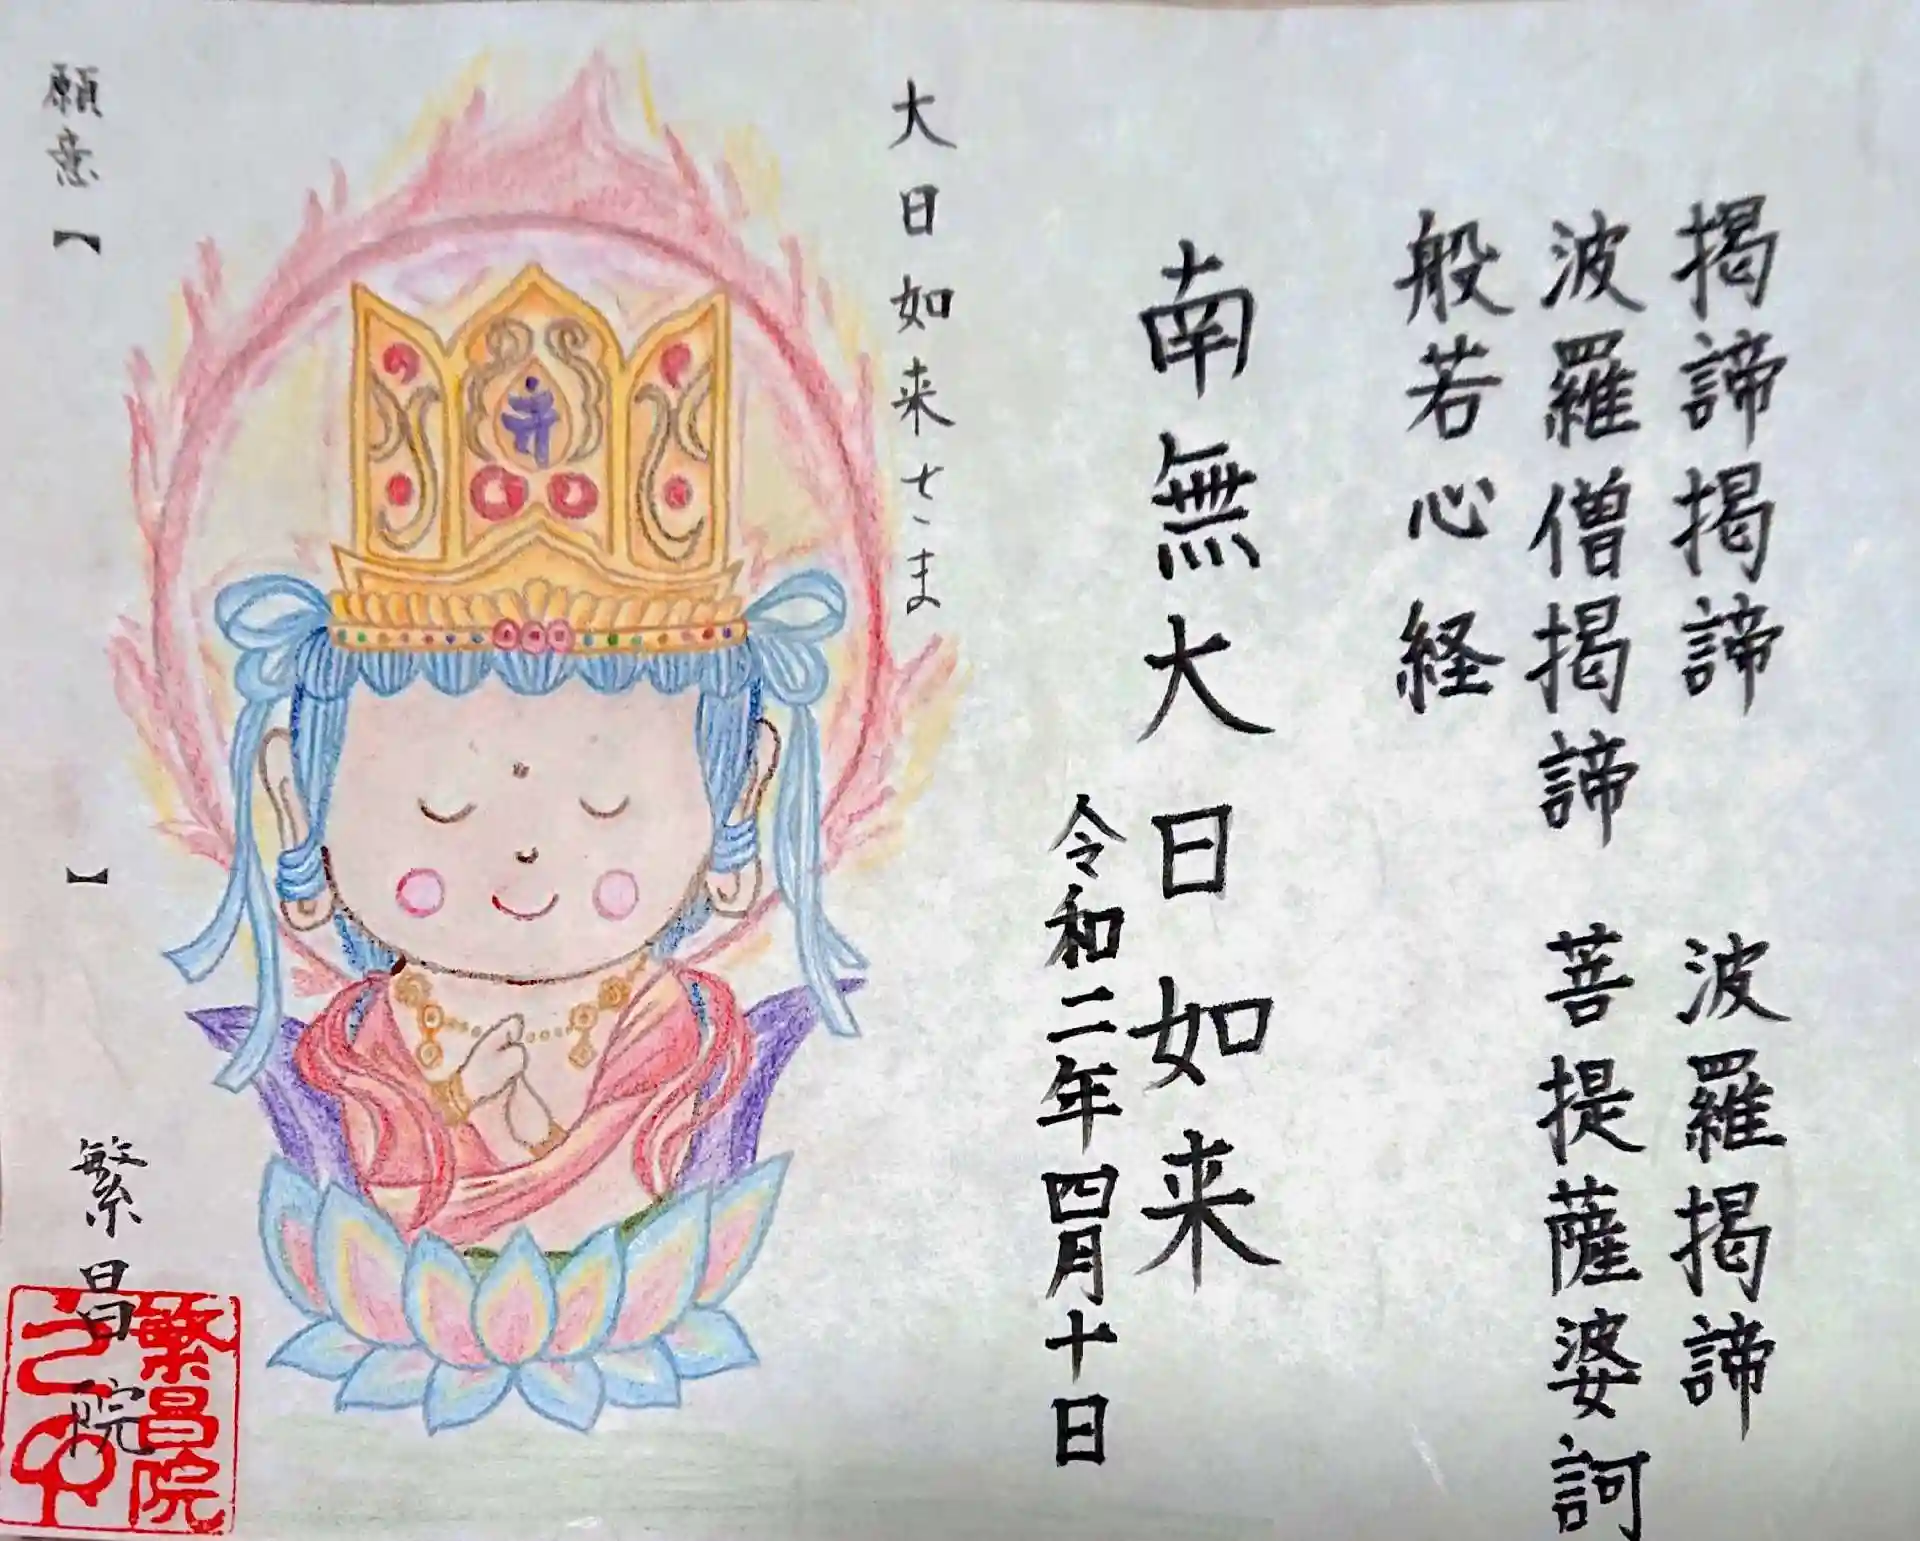 揭諦揭諦 波羅揭諦
波羅僧揭諦 菩提薩婆訶
般若心経
南無大日如来
令和二年四月十日
大日如来さま
願意【 】
繁昌院
繁昌院